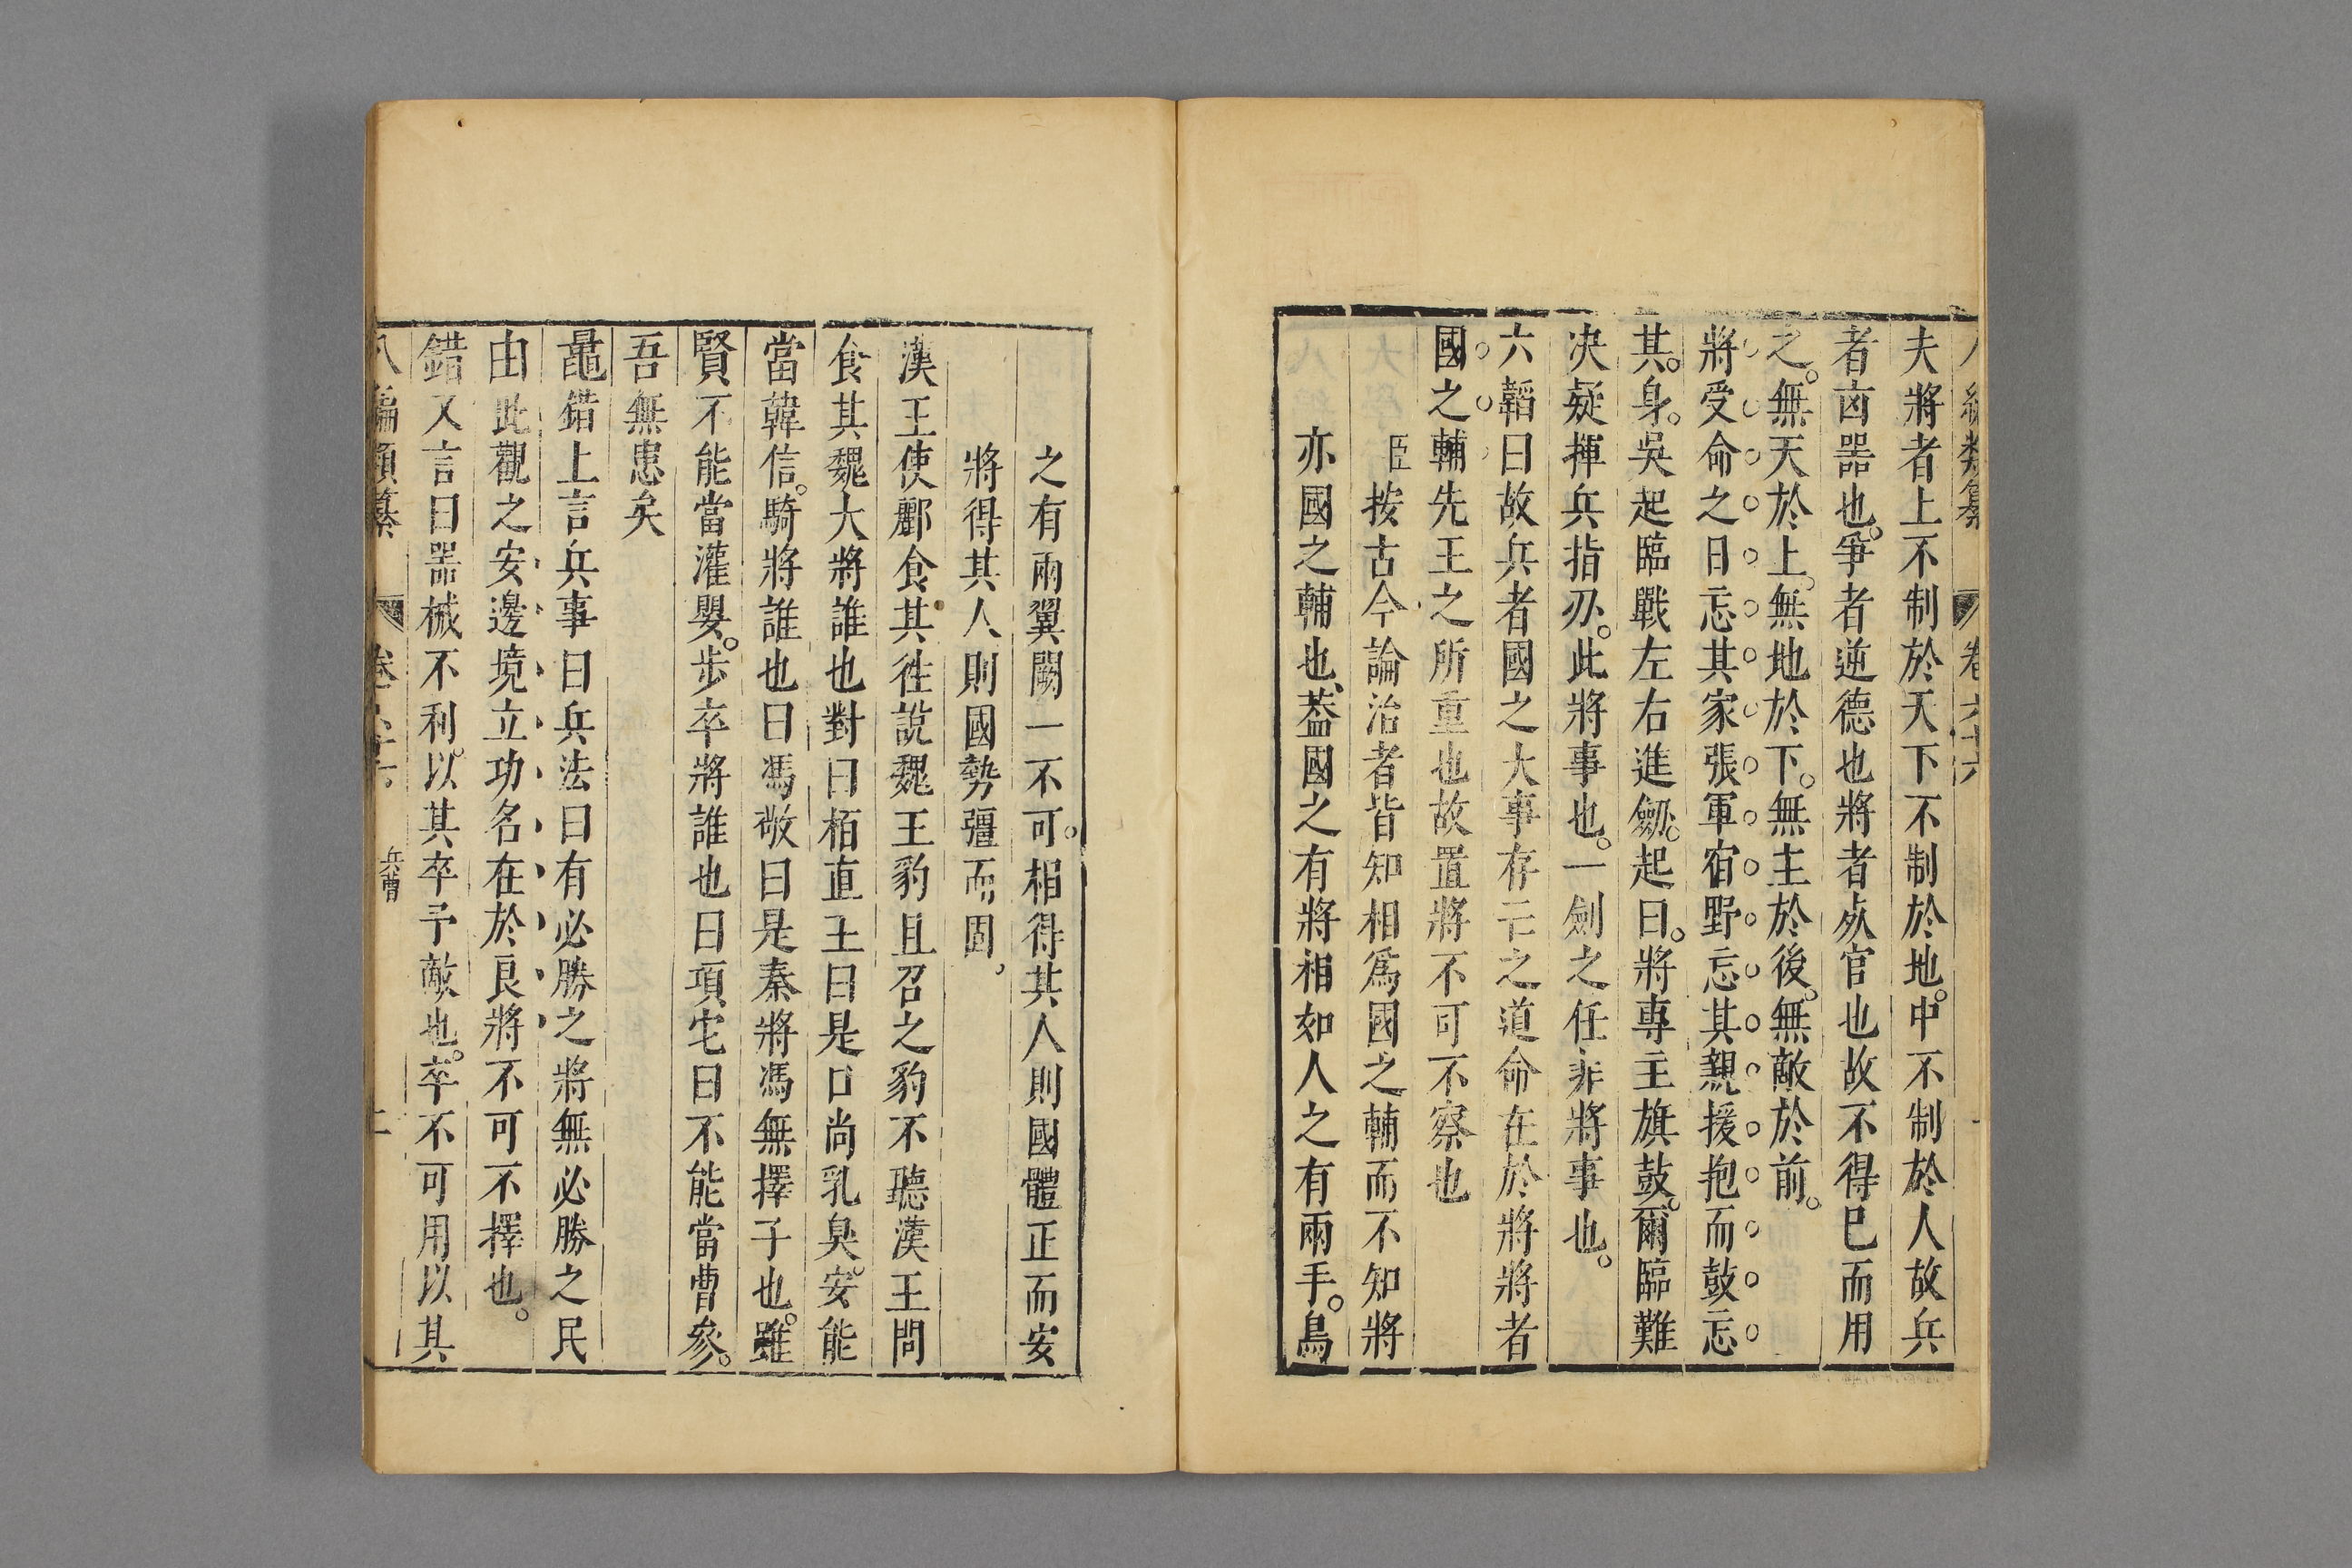 八編類纂 卷六十六
夫將者上不制於天下不制於地。中不制於人故兵
者凶噐也。爭者逆德也將者死官也故不得已而用
之。無天於上。無地於下。無主於後。無敵於前。
將受命之日忘其家張軍宿野忘其親援抱而鼓忘
其。身。吳起臨戰左右進劒。起曰。將專主旗鼓。爾臨難
決疑揮兵指刃。此將事也。一劍之任非將事也。
六韜曰故兵者國之大事存亡之道命在於將將者
國之輔先王之所重也故置將不可不察也
臣按古今論治者皆知相爲國之輔而不知將
亦國之輔也、葢國之有將相如人之有兩手。鳥
之有兩翼闕一不可。相得其人則國體正而安
將得其人則國勢彊而固、
漢王使酈食其徃說魏王豹且召之豹不聽漢王問
食其魏大將誰也對曰栢直王曰是口尚乳臭。安能
當韓信。騎將誰也曰馮敬曰是秦將馮無擇子也。雖
賢不能當灌嬰。步卒將誰也曰項它曰不能當曹參。
吾無患矣
鼂錯上言兵事曰兵法曰有必勝之將無必勝之民
由此觀之安邊境立功名在於良將不可不擇也。
錯又言曰噐械不利。以其卒予敵也。卒不可用以其
八編類纂 卷六十六 兵曹 二